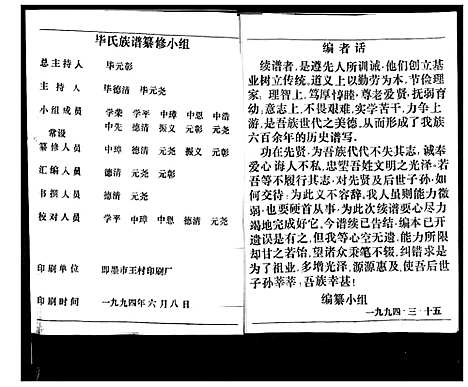 毕氏族谱纂修小组
总主持人 毕元彰
主持人 毕德清 毕元尧
小组成员 学荣 学平 中璋 中恩 中浩
中先 德清 振义 元彰 元尧
常设
纂修人员 中璋 德清 元尧 振义 元彰
汇编人员 德清 元尧 元彰
书撰人员 德清 元尧
校对人员 学平 中璋 中恩 德清 元尧
印刷单位 即墨市王村印刷厂
印刷时间 一九九四年六月八日
编者话
续谱者,是遵先人所训诫,他们创立基
业树立传统,道义上以勤劳为本,节俭理
家;理智上,笃厚悖睦,尊老爱贤,抚弱育
幼;意志上,不畏艰难,实学苦干,力争上
游,是吾族世代之美德,从而形成了我族
六百余年的历史谱写。
功在先贤,为吾族代代不失其志,诚奉
爱心,诲人不私,忠望吾姓文明之光泽,若
吾等不履行其志,对先贤及后世子孙,如
何交待;为此义不容辞,我人员则能力微
弱,也要硬首从事,为此次续谱要心尽力
竭地完成好。今谱续已告结,编本已开
遗误是有之,但我等心空无遗,能力所限
却甘之若饴,望诸众秉笔不辍,纠错求是
为了祖业,多增光泽,源源惠及,使吾后世
子孙莘莘;吾族幸甚!
编纂小组
一九九四·三·十五